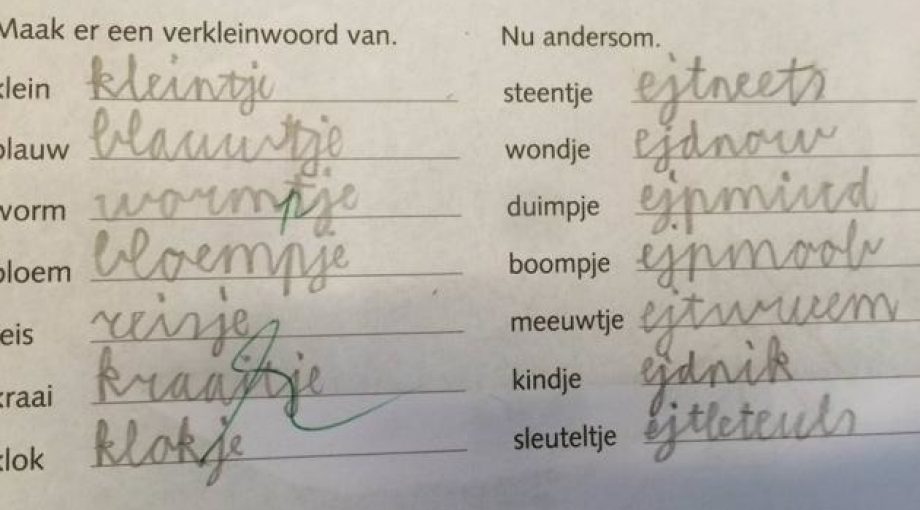 Maak er een verkleinwoord van.
klein kleintje
blauw blauwtje
worm wormpje
bloem bloempje
reis reisje
kraai kraaitje
klok klokje
Nu andersom.
steentje ejtneets
wondje ejdnow
duimpje ejpmiud
boompje ejpmoob
meeuwtje ejtwueem
kindje ejdnik
sleuteltje